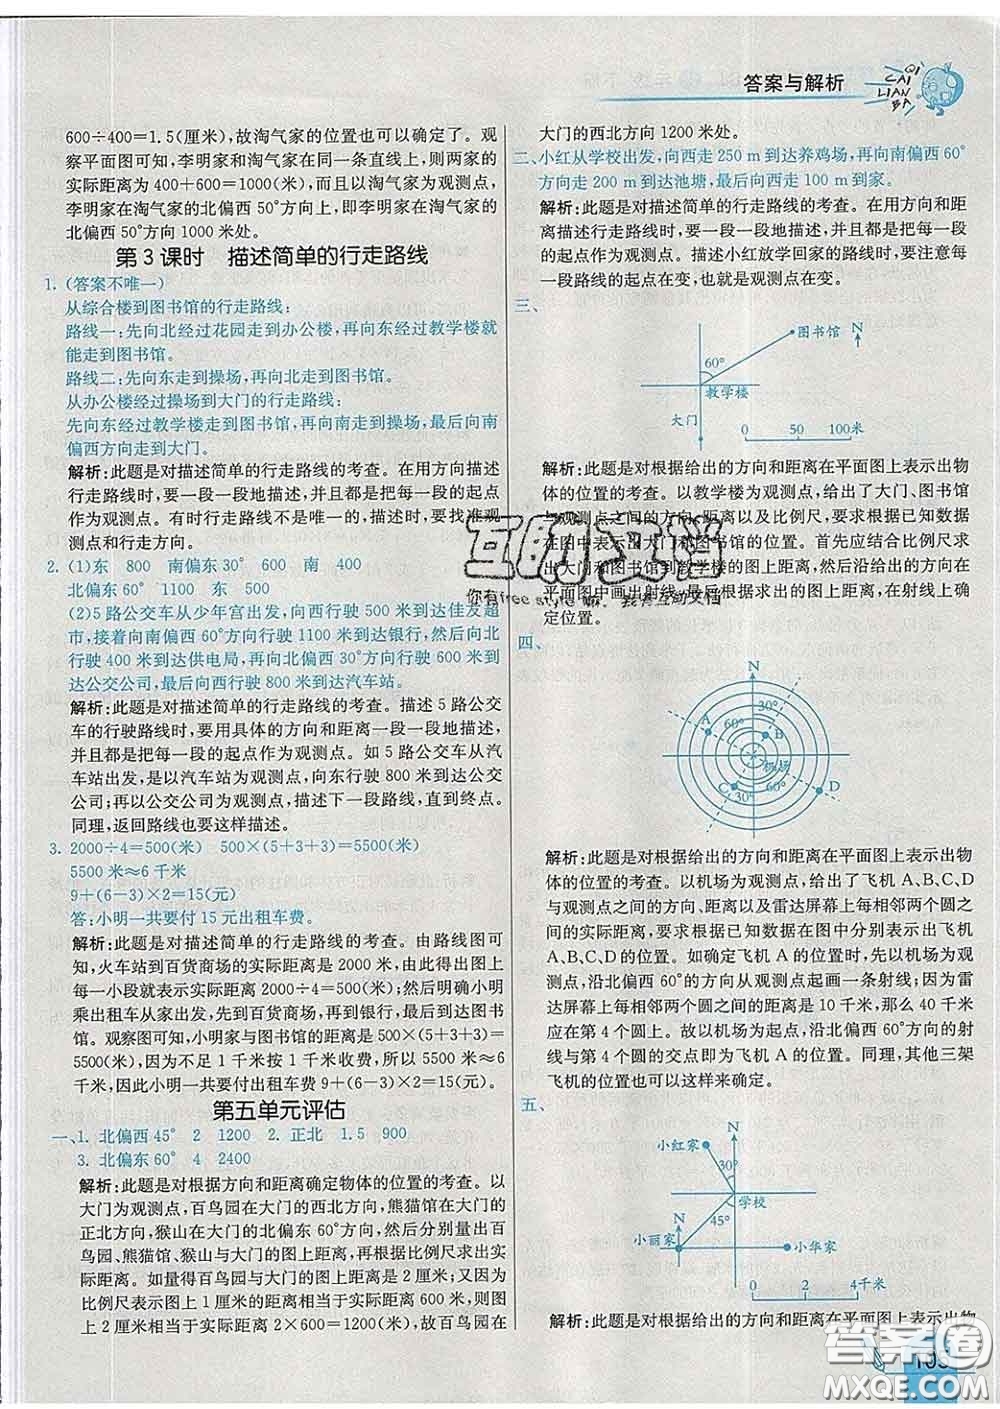 答案与解析
QI
CAI
LIAN
BA
600÷400=1.5(厘米),故淘气家的位置也可以确定了。观
察平面图可知,李明家和淘气家在同一条直线上,则两家的
实际距离为400+600=1000(米),而且以淘气家为观测点,
李明家在淘气家的北偏西50°方向上,即李明家在淘气家的
北偏西 50°方向 1000 米处。
第3课时 描述简单的行走路线
1. (答案不唯一)
从综合楼到图书馆的行走路线:
路线一:先向北经过花园走到办公楼,再向东经过教学楼就
能走到图书馆。
路线二:先向东走到操场,再向北走到图书馆。
从办公楼经过操场到大门的行走路线:
先向东经过教学楼走到图书馆,再向南走到操场,最后向南
偏西方向走到大门。
解析:此题是对描述简单的行走路线的考查。在用方向描述
行走路线时,要一段一段地描述,并且都是把每一段的起点
作为观测点。有时行走路线不是唯一的,描述时,要找准观
测点和行走方向。
2. (1)东 800 南偏东30° 600 南 400
北偏东60° 1100 东 500
(2)5路公交车从少年宫出发,向西行驶500米到达佳茂超
市,接着向南偏西60°方向行驶1100米到达银行,然后向北
行驶400米到达供电局,再向北偏西30°方向行驶600米到
达公交公司,最后向西行驶800米到达汽车站。
解析:此题是对描述简单的行走路线的考查。描述5路公交
车的行驶路线时,要用具体的方向和距离一段一段地描述,
并且都是把每一段的起点作为观测点。如5路公交车从汽
车站出发,是以汽车站为观测点,向东行驶800米到达公交
公司;再以公交公司为观测点,描述下一段路线,直到终点。
同理,返回路线也要这样描述。
3. 2000÷4=500(米) 500×(5+3+3)=5500(米)
5500米≈6千米
9+(6-3)×2=15(元)
答:小明一共要付15元出租车费。
解析:此题是对描述简单的行走路线的考查。由路线图可
知,火车站到百货商场的实际距离是2000米,由此得出图上
每一小段就表示实际距离2000÷4=500(米),然后根据小明
乘出租车从家出发,先到百货商场,再到银行,最后到达图
书馆。观察图可知,小明家与图书馆的距离是500×(5+3+3)=
5500(米),因为不足1千米按1千米收费,所以5500米≈6
千米,因此小明一共要付出租车费9+(6-3)×2=15(元)。
第五单元评估
一、1. 北偏西45° 2 1200 2. 正北 1.5 900
3. 北偏东60° 4 2400
解析:此题是对根据方向和距离确定物体的位置的考查。以
大门为观测点,百鸟园在大门的西北方向,熊猫馆在大门的
正北方向,猴山在大门的北偏东60°方向,然后分别量出百
鸟园、熊猫馆、猴山与大门的图上距离,再根据比例尺求出
实际距离。如量得百鸟园与大门的图上距离是2厘米;又因为
比例尺表示图上1厘米的距离相当于实际距离600米,则图
上2厘米相当于实际距离2×600=1200(米),故百鸟园在
大门的西北方向1200米处。
二、小红从学校出发,向西走250m到达养鸡场,再向南偏西60°
方向走200m到达池塘,最后向西走100m到家。
解析:此题是对描述简单的行走路线的考查。在用方向和距
离描述行走路线时,要一段一段地描述,并且都是把每一段
的起点作为观测点。描述小红放学回家的路线时,要注意每
一段路线的起点在变,也就是观测点在变。
三、
图书馆 N
60°
教学楼
大门
0 50 100米
解析:此题是对根据给出的方向和距离在平面图上表示出物
体的位置的考查。以教学楼为观测点,给出了大门、图书馆
与观测点之间的方向、距离以及比例尺,要求根据已知数据
在图中表示出大门和图书馆的位置。首先应结合比例尺求
出大门和图书馆到教学楼的图上距离,然后沿给出的方向在
平面图中画出射线,最后根据求出的图上距离,在射线上确
定位置。
四、
N
30°
A
60°
B
机场
C
30°
60°
D
解析:此题是对根据给出的方向和距离在平面图上表示出物
体的位置的考查。以机场为观测点,给出了飞机A、B、C、D
与观测点之间的方向、距离以及雷达屏幕上每相邻两个圆之
间的实际距离,要求根据已知数据在图中分别表示出飞机
A、B、C、D的位置。如确定飞机A的位置时,先以机场为观
测点,沿北偏西60°的方向从观测点起画一条射线;因为雷
达屏幕上每相邻两个圆之间的距离是10千米,那么40千米
应在第4个圆上。故以机场为起点,沿北偏西60°方向的射
线与第4个圆的交点即为飞机A的位置。同理,其他三架
飞机的位置也可以这样来确定。
五、
N
小红家
30°
学校
45°
N
小丽家
小华家
0 2 4千米
解析:此题是对根据给出的方向和距离在平面图上表示出物
互助文档
你有free style嘛,我有互动文档
答案圈
MXQE.COM